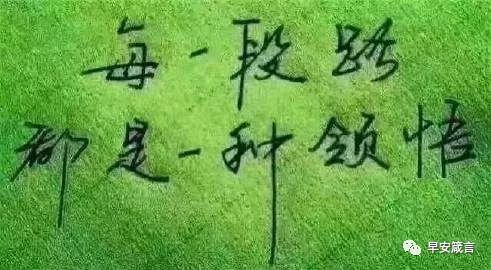 每一段路
都是一种领悟
早安箴言